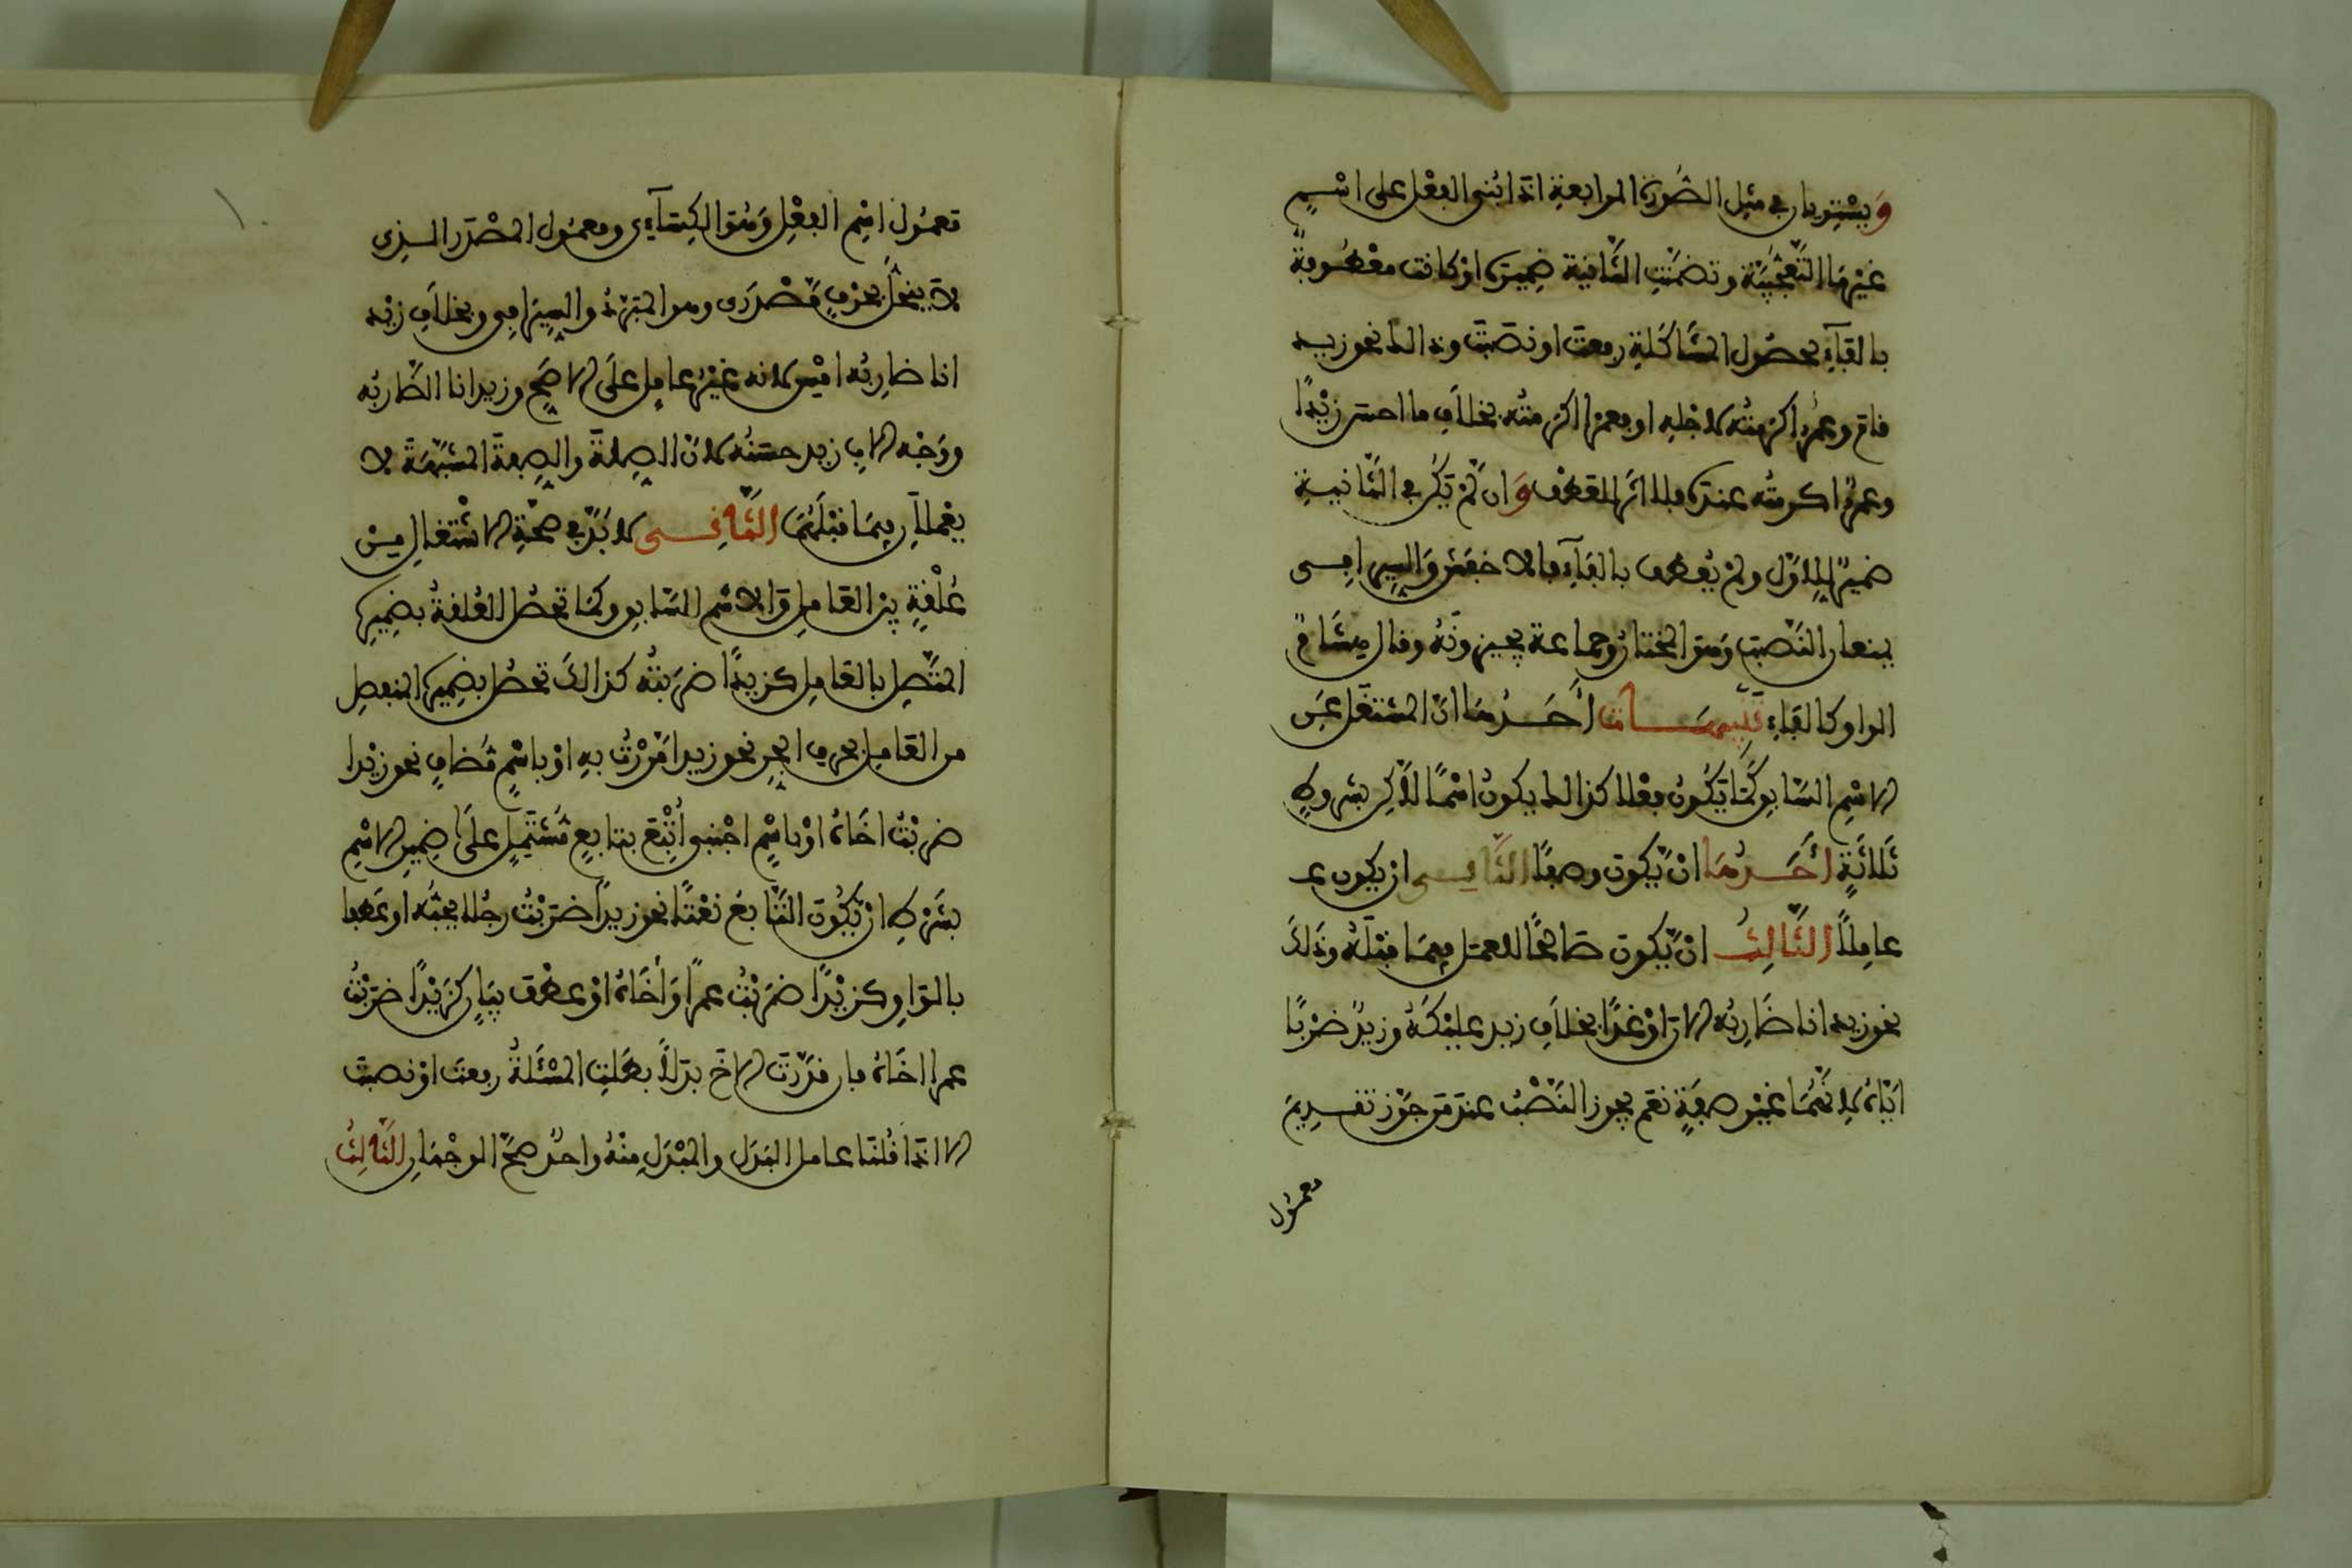 ويستويان في مثل الصورة الرابعة اذا بني الفعل على اسم
غير ما التعجبية وتضمنت الثانية ضميره او كانت معطوفة
بالفاء لحصول المشاكلة رفعت او نصبت وذالك نحو زيد
قام وعمرو اكرمته لاجله او فعمرا اكرمته بخلاف ما احسن زيدا
وعمرو اكرمته عنده فلا اثر للعطف وان لم يكن في الثانية
ضمير للاول ولم يعطف بالفاء فالاخفش والسيرافي
يمنعان النصب وهو المختار وجماعة يجيزونه وقال هشام
الواو كالفاء تتميمات احدها ان المشتغل عن
الاسم السابق كما يكون فعلا كذالك يكون اسما لاكن بشروط
ثلاثة احدها ان يكون وصفا الثاني ان يكون عـ
عاملا الثالث ان يكون صالحا للعمل فيما قبله وذلك
نحو زيد انا ضاربه الان او غدا بخلاف زيد عليكه وزيد ضربا
اياه لانهما غير صفة نعم يجوز النصب عند من جوز تقديم
معمول
معمول اسم الفعل وهو الكسآءي ومعمول المصدر الذي
لا ينحل بحرف مصدري وهو المبرد والسيرافي وبخلاف زيد
انا ضاربه امس لانه غير عامل على الاصح وزيد انا الضاربه
ووجه الاب زيد حسنه لان الصلة والصفة المشبهة لا
يعملان فيما قبلهما الثاني لا بد في صحة الاشتغال من
علقة بين العامل والاسم السابق وكما تحصل العلقة بضميره
المتصل بالعامل كزيدا ضربته كذالك تحصل بضميره المنفصل
من العامل بحرف الجر نحو زيدا مررت به او باسم مضاف نحو زيدا
ضربت اخاه او باسم اجنبي اتبع بتابع مشتمل على ضمير الاسم
بشرط ان يكون التابع نعتا نحو زيدا ضربت رجلا يحبه او عطفا
بالواو كزيدا ضربت عمرا واخاه او عطف بيان كزيدا ضربت
عمرا اخاه فان قدرت الاخ بدلا بطلت المسئلة رفعت او نصبت
الا اذا قلنا عامل البدل والمبدل منه واحد صح الوجهان الثالث